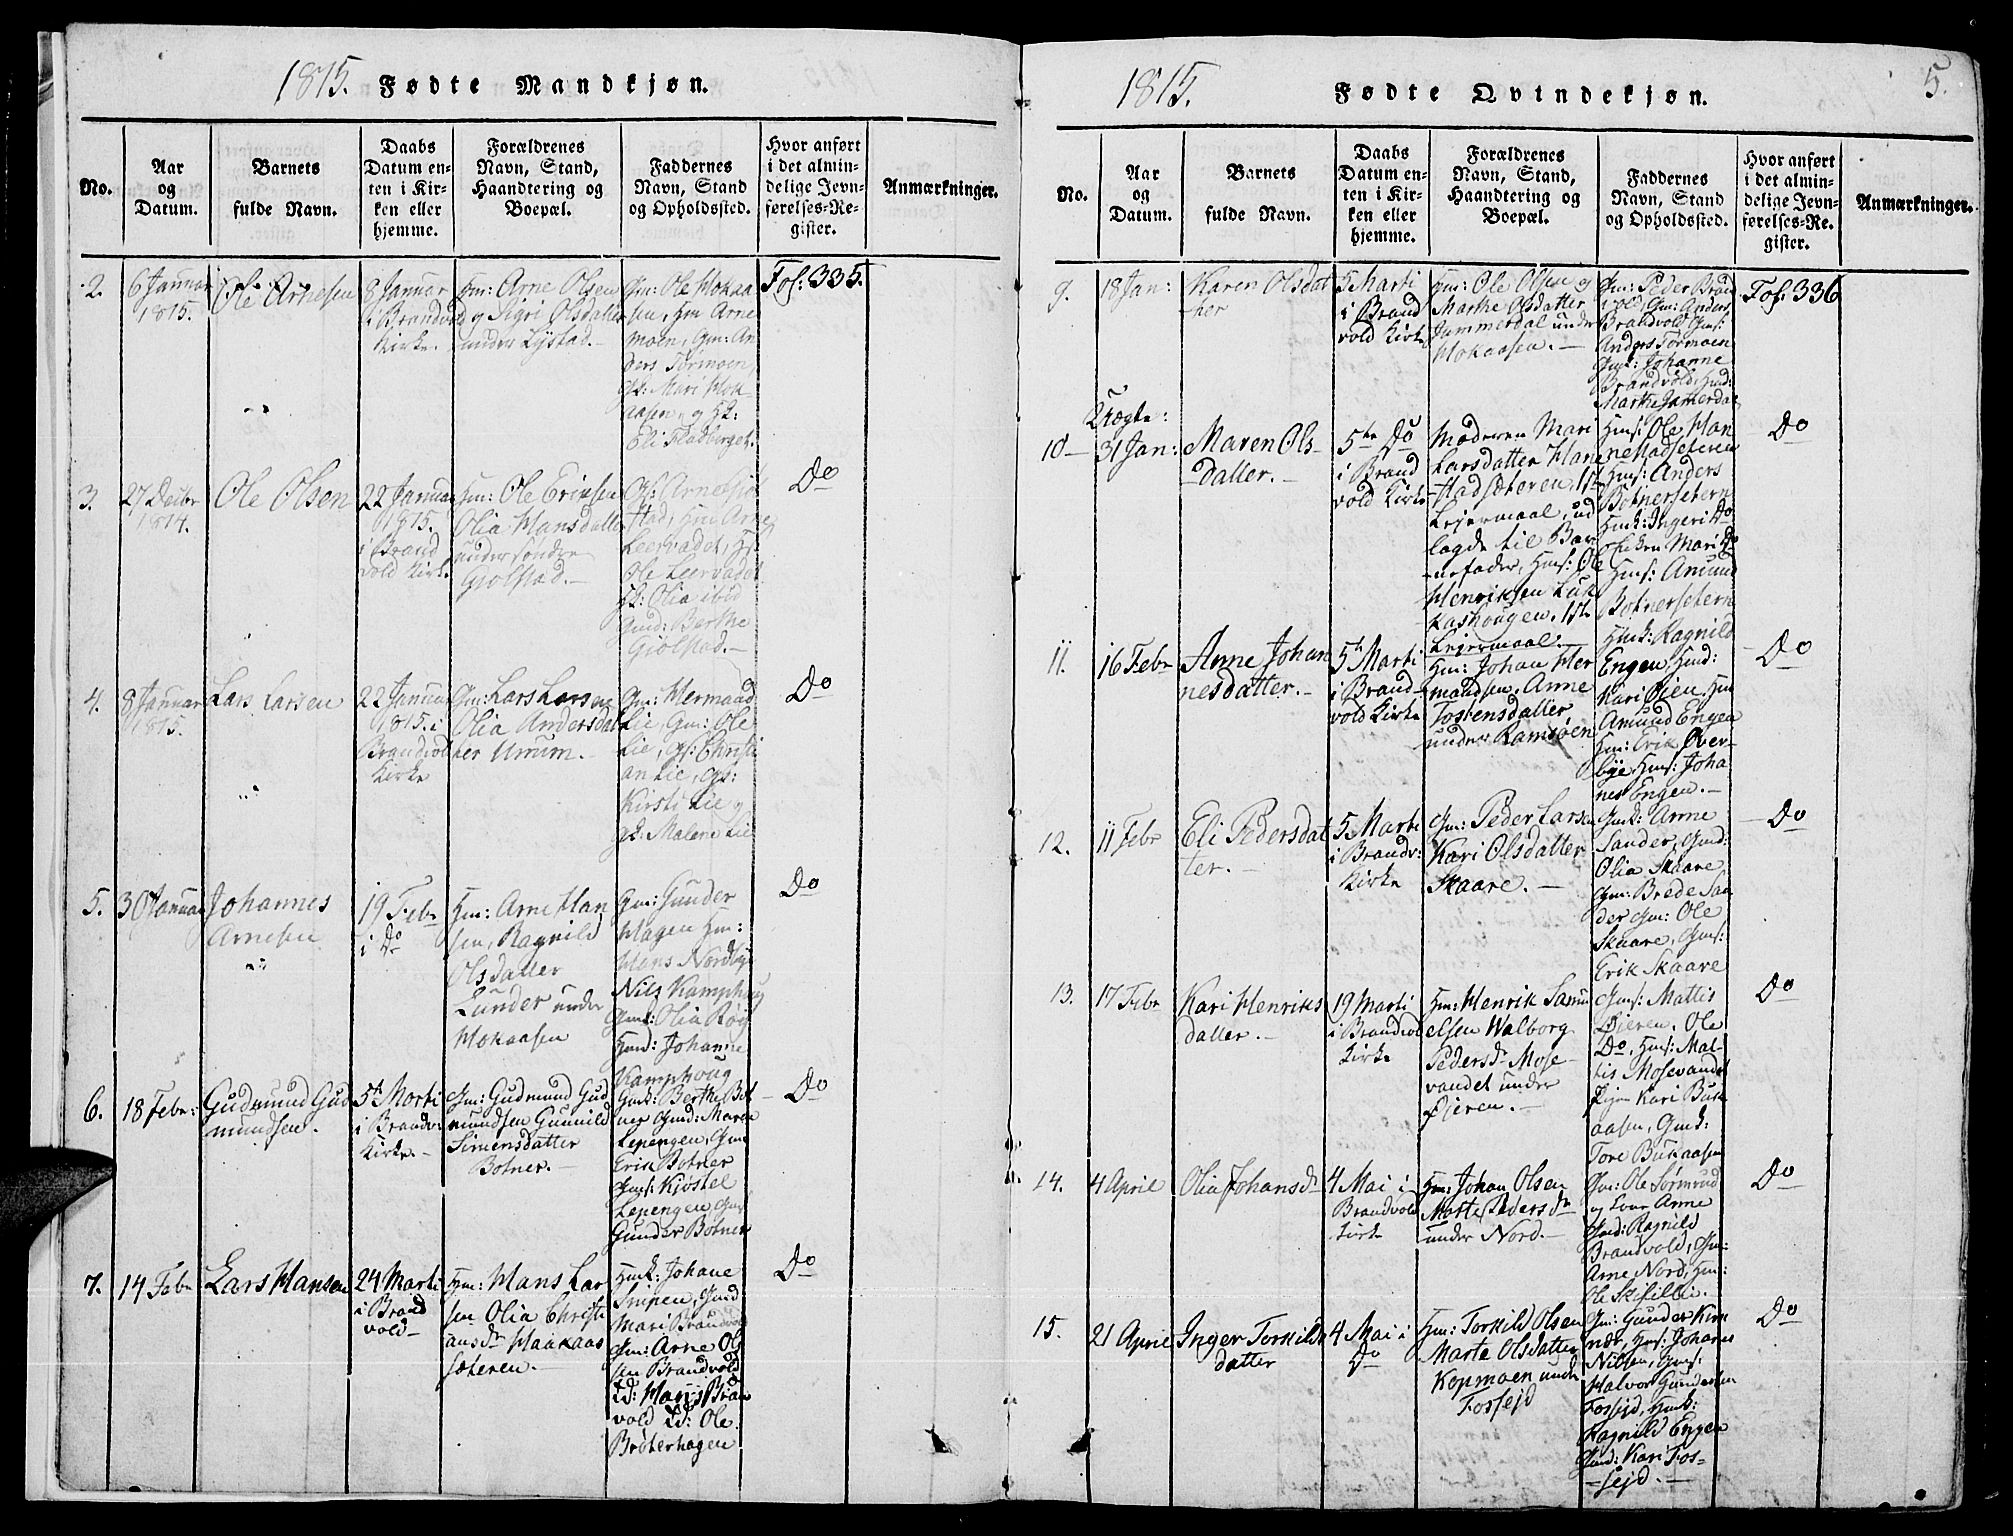 1815. Fødte Mandkjøn.
No.
Aar
og
Datum.
Barnets
fulde Navn.
Daabs
Datum en-
ten i Kir-
ken eller
hjemme.
Forældrenes
Navn, Stand,
Haandtering og
Boepæl.
Faddernes
Navn, Stand
og Opholdssted.
Hvor anført
i det almin-
delige Jevn-
førelses-Re-
gister.
Anmærkninger.
2.
6 Januar
1815.
Ole Arnesen
8 Januar
i Brandvold
Kirke.
Hm: Arne Olsen
og Sigri Olsdatter
under Lystad.-
Gm: Ole Mokaa
sen, Hm Arne
moen, Gm: An
ders Tørmoen,
Gk: Mari Mok-
aasen, og Hk:
Eli Fladberget.
Fol: 335.
3.
27 Decbr
1814.
Ole Olsen
22 Januar
1815.
i Brand
vold Kirk.
Hm: Ole Eriksen
Olia Hansdatter
under søndre
Gjølstad.-
Gs: Arne Gjøl
stad, Hm Arne
Leervadet, Hs:
Ole Leervadet
Hk: Olia ibid
Gmd: Berthe
Gjølstad.-
Do
4.
8 Januar
1815.
Lars Larsen
22 Januar
1815. i
Brandvold
Kirke
Gm: Lars Larsen
Olia Andersdat
ter Urum.-
Gm: Hermand
Lie, Gm: Ole
Lie, Gs: Christi
an Lie, Gs:
Kirsti Lie og
Gk: Malene Lie
Do
5.
30 Januar
Johannes
Arnesen
19 Febr
i Do
Hm: Arne Han
sen, Ragnild
Olsdatter
Lunder under
Mokaasen
Gm: Gunder
Hagen Hm:
Hans Nordbye
Nils Kamphoug
Gmk: Olia Røg
Hmd: Johanne
Kamphoug
Do
6.
18 Febr:
Gudmund Gud
mundsen.
5te Marti
i Brandv:
Kirke.-
Gm: Gudmund Gud
mundsen Gunnild
Simensdatter
Botner.-
Gmk: Berthe Bot
ner Gmd: Maren
Lepengen, Gm:
Erik Botner
Gms: Kjøstel
Lepengen, Gms
Gunder Botner
Do
7.
14 Febr
Lars Hansen
24 Marti
i Brand
vold-
Hm: Hans Lar
sen Olia Christi
ansdr Haakaas
sæteren.
Hmk: Johane
Snipen, Gmd
Mari Brandvold
Gm: Arne Ol
sen Brandvold
Ld: Hans Bran
vold Ld: Ole
Brøterhagen
Do
1815. Fødte Qvindekjøn. 5.
No.
Aar
og
Datum.
Barnets
fulde Navn.
Daabs
Datum en-
ten i Kir-
ken eller
hjemme.
Forældrenes
Navn, Stand,
Haandtering og
Boepæl.
Faddernes
Navn, Stand
og Opholdssted.
Hvor anført
i det almin-
delige Jevn-
førelses-Re-
gister.
Anmærkninger.
9.
18 Jan:
Karen Olsdat
ter
5 Marti
i Brand
vold Kirke
Hm: Ole Olsen og
Marthe Olsdatter
Jammerdal under
Mokaasen.-
Gm: Peder Brand
vold, Gm: Anders
Brandvold Gms:
Anders Tormoen
Gmk: Johanne
Brandvold, Hmd:
Marthe Jamerdal
Fol. 336
Uægte:
10
31 Jan:
Maren Ols-
datter.-
5te Do
i Brand
vold Kirke
Moderen Mari
Larsdatter Hane
stadsæteren, 1ste
Leiermaal, ud
lagde til Bar
nefader, Hms: Ole
Henriksen Luk
kashougen, 1ste
Leiermaal.
Hms: Ole Han
nestadseteren
Hms: Anders
Botnersetern
Hmk: Ingeri Do
Pigen Mari Do
Hms: Amund
Botnersetern
Do
11.
16 Febr
Anne Johan
nesdatter.-
5te Marti
i Brand-
vold Kirke
Hm: Johan Her
mandsen, Anne
Tostensdatter
under Ramsøen
Hmk: Ragnild
Engen, Hmd:
Kari Øien, Hm
Amund Engen
Hm: Erik Over-
bye, Hms: Joha
nes Engen.-
Do
12.
11 Febr
Eli Pedersdat
ter.-
5 Marti
i Brandv:
Kirke
Gm: Peder Larsen
Kari Olsdatter
Skaare.-
Gmk: Anne
Sander, Gmd:
Olia Skaare
Gm: Brede San
der Gm: Ole
Skaare, Gms:
Erik Skaare
Do
13.
17 Febr
Kari Henriks
datter.-
19 Marti
i Brandvold
Kirke
Hm: Henrik Samu
elsen Walborg
Pedersdr Mose-
vandet under
Øieren.-
Gms: Mattis
Øieren, Ole
Do, Hms: Mat-
tis Mosevandet
Pigen Kari Buk
aasen, Gmk:
Tore Bukaasen
Do
14.
4 April
Olia Johansdr
4 Mai i
Brandvold
Kirke
Hm: Johan Olsen
Marte Pedersdr
under Nord.-
Gm: Ole Sørmrud
og Kone Anne
Gmd: Ragnild
Brandvold, Gm:
Arne Nord, Hm:
Ole Skifillen.
Do
15.
21 April
Inger Torkilds
datter
4 Mai i
Do
Hm: Torkild Olsen
Marte Olsdatter
Kopmoen under
Fossejd
Gm: Gunder Kirk
nær, Hms: Johanes
Nilsen, Gms:
Halvor Gundersen
Fossejd, Hmk:
Ragnild Engen
Gmd: Kari Fos-
sejd.-
Do